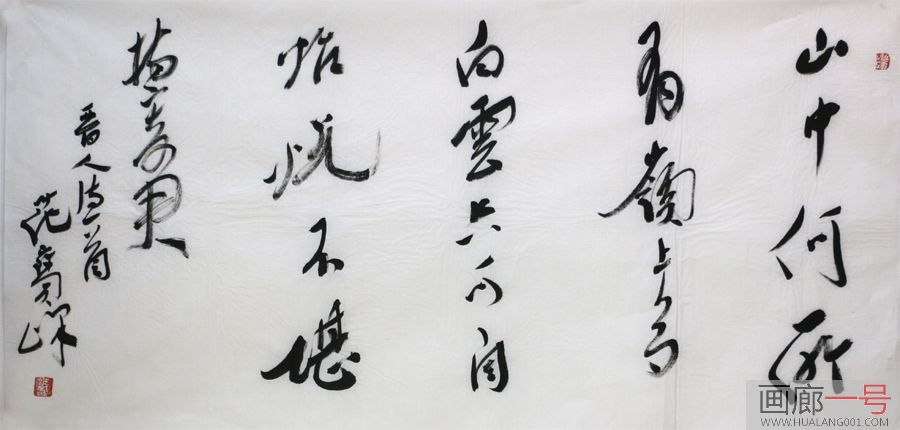 山中何所
有嶺上多
白雲只可自
怡悦不堪
持寄君
晋人诗一首
范
画廊一号
WWW.HUALANG001.COM